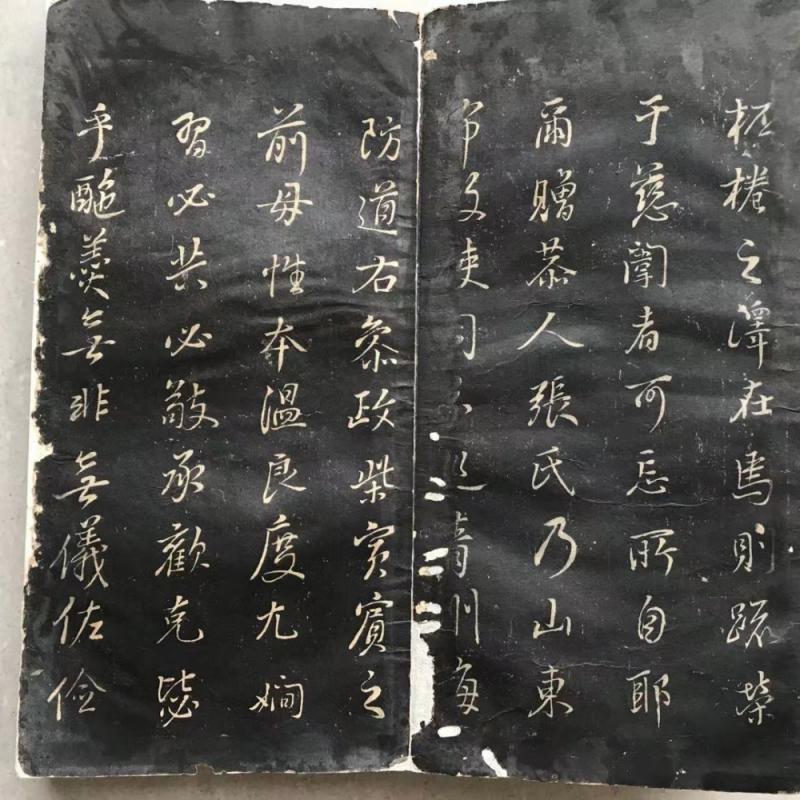 桮棬之澤在焉則疏榮
于慈闈者可忘所自耶
爾贈恭人張氏乃山東
布政使司分巡青州海
防道右叅政柴寅賓之
前母性本溫良度尤嫻
習必共必敬承歡克毖
乎酏羹無非無儀佐儉